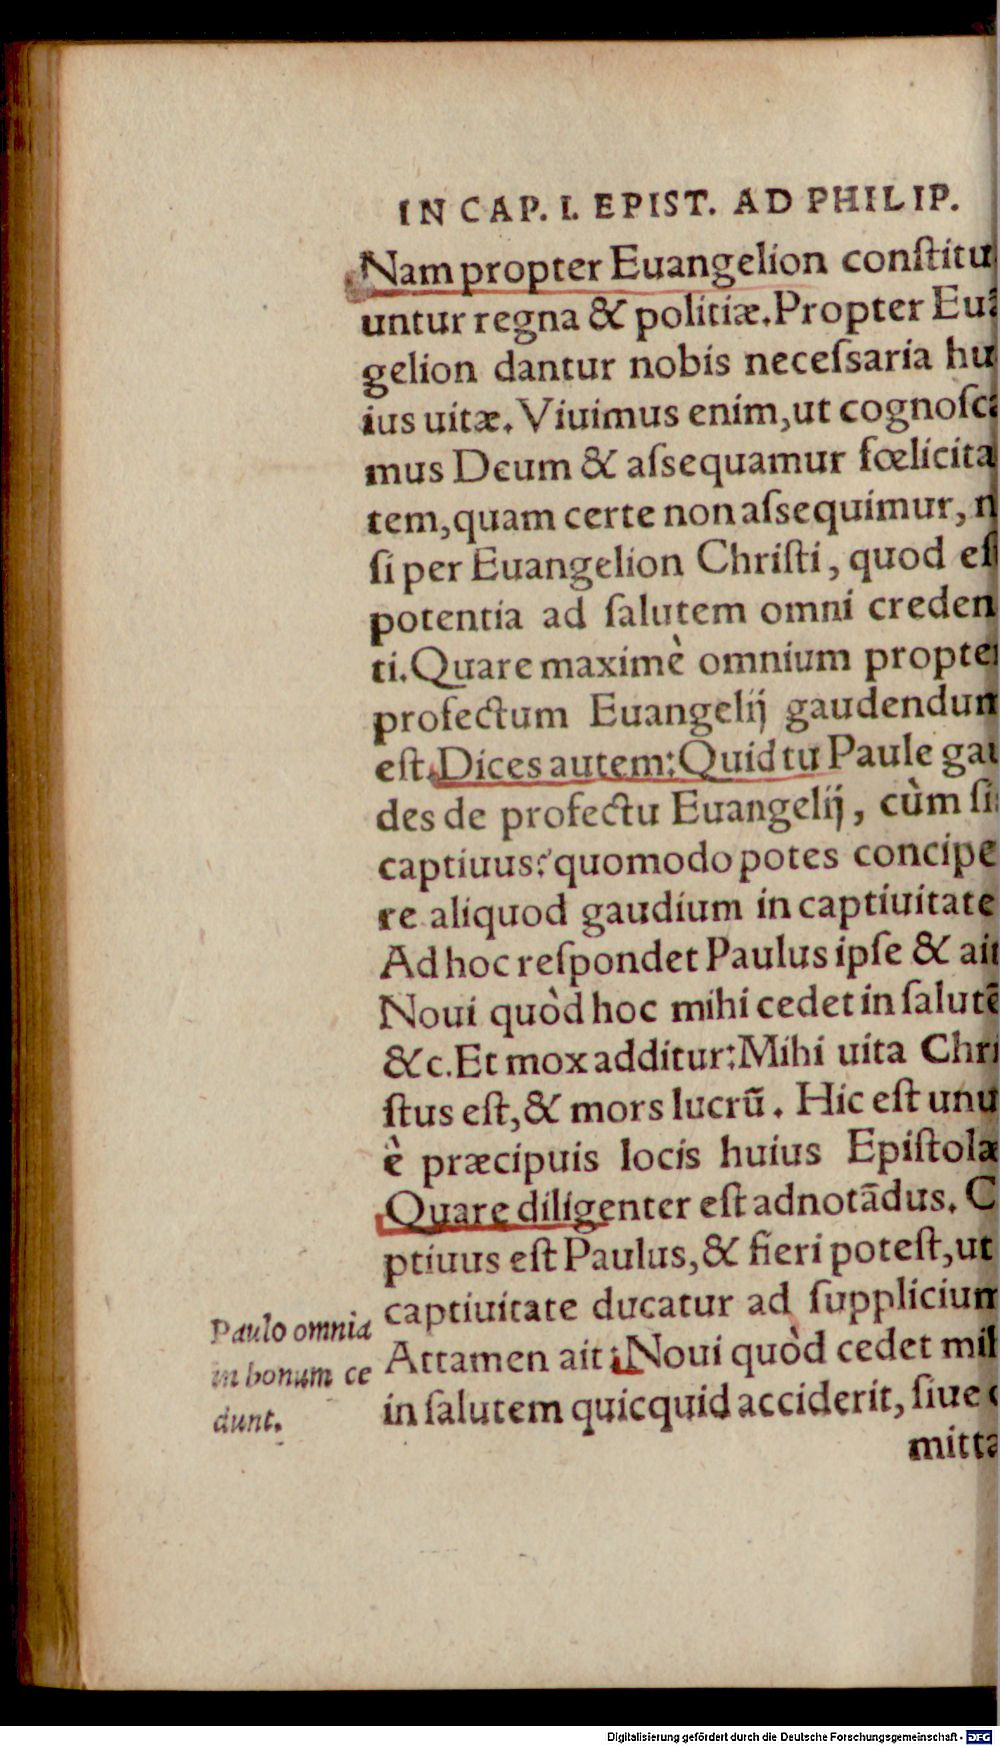 IN CAP. I. EPIST. AD PHILIP.
Nam propter Euangelion conſtitu
untur regna & politiæ. Propter Euã
gelion dantur nobis neceſsaria hu
ius uitæ. Viuimus enim, ut cognoſca
mus Deum & aſsequamur fœlicita
tem, quam certe non aſsequimur, n
ſi per Euangelion Chriſti, quod eſ
potentia ad ſalutem omni creden
ti. Quare maximè omnium propter
profectum Euangelij gaudendum
eſt. Dices autem: Quid tu Paule gau
des de profectu Euangelij, cùm ſi
captiuus? quomodo potes concipe
re aliquod gaudium in captiuitate
Ad hoc reſpondet Paulus ipſe & ait
Noui quòd hoc mihi cedet in ſalutẽ
&c. Et mox additur: Mihi uita Chri
ſtus eſt, & mors lucrũ. Hic eſt unu
è præcipuis locis huius Epiſtolæ
Quare diligenter eſt adnotãdus. C
ptiuus eſt Paulus, & fieri poteſt, ut
captiuitate ducatur ad ſupplicium
Attamen ait: Noui quòd cedet mih
in ſalutem quicquid acciderit, ſiue
mitta
Paulo omnia
in bonum ce
dunt.
Digitalisierung gefördert durch die Deutsche Forschungsgemeinschaft - DFG